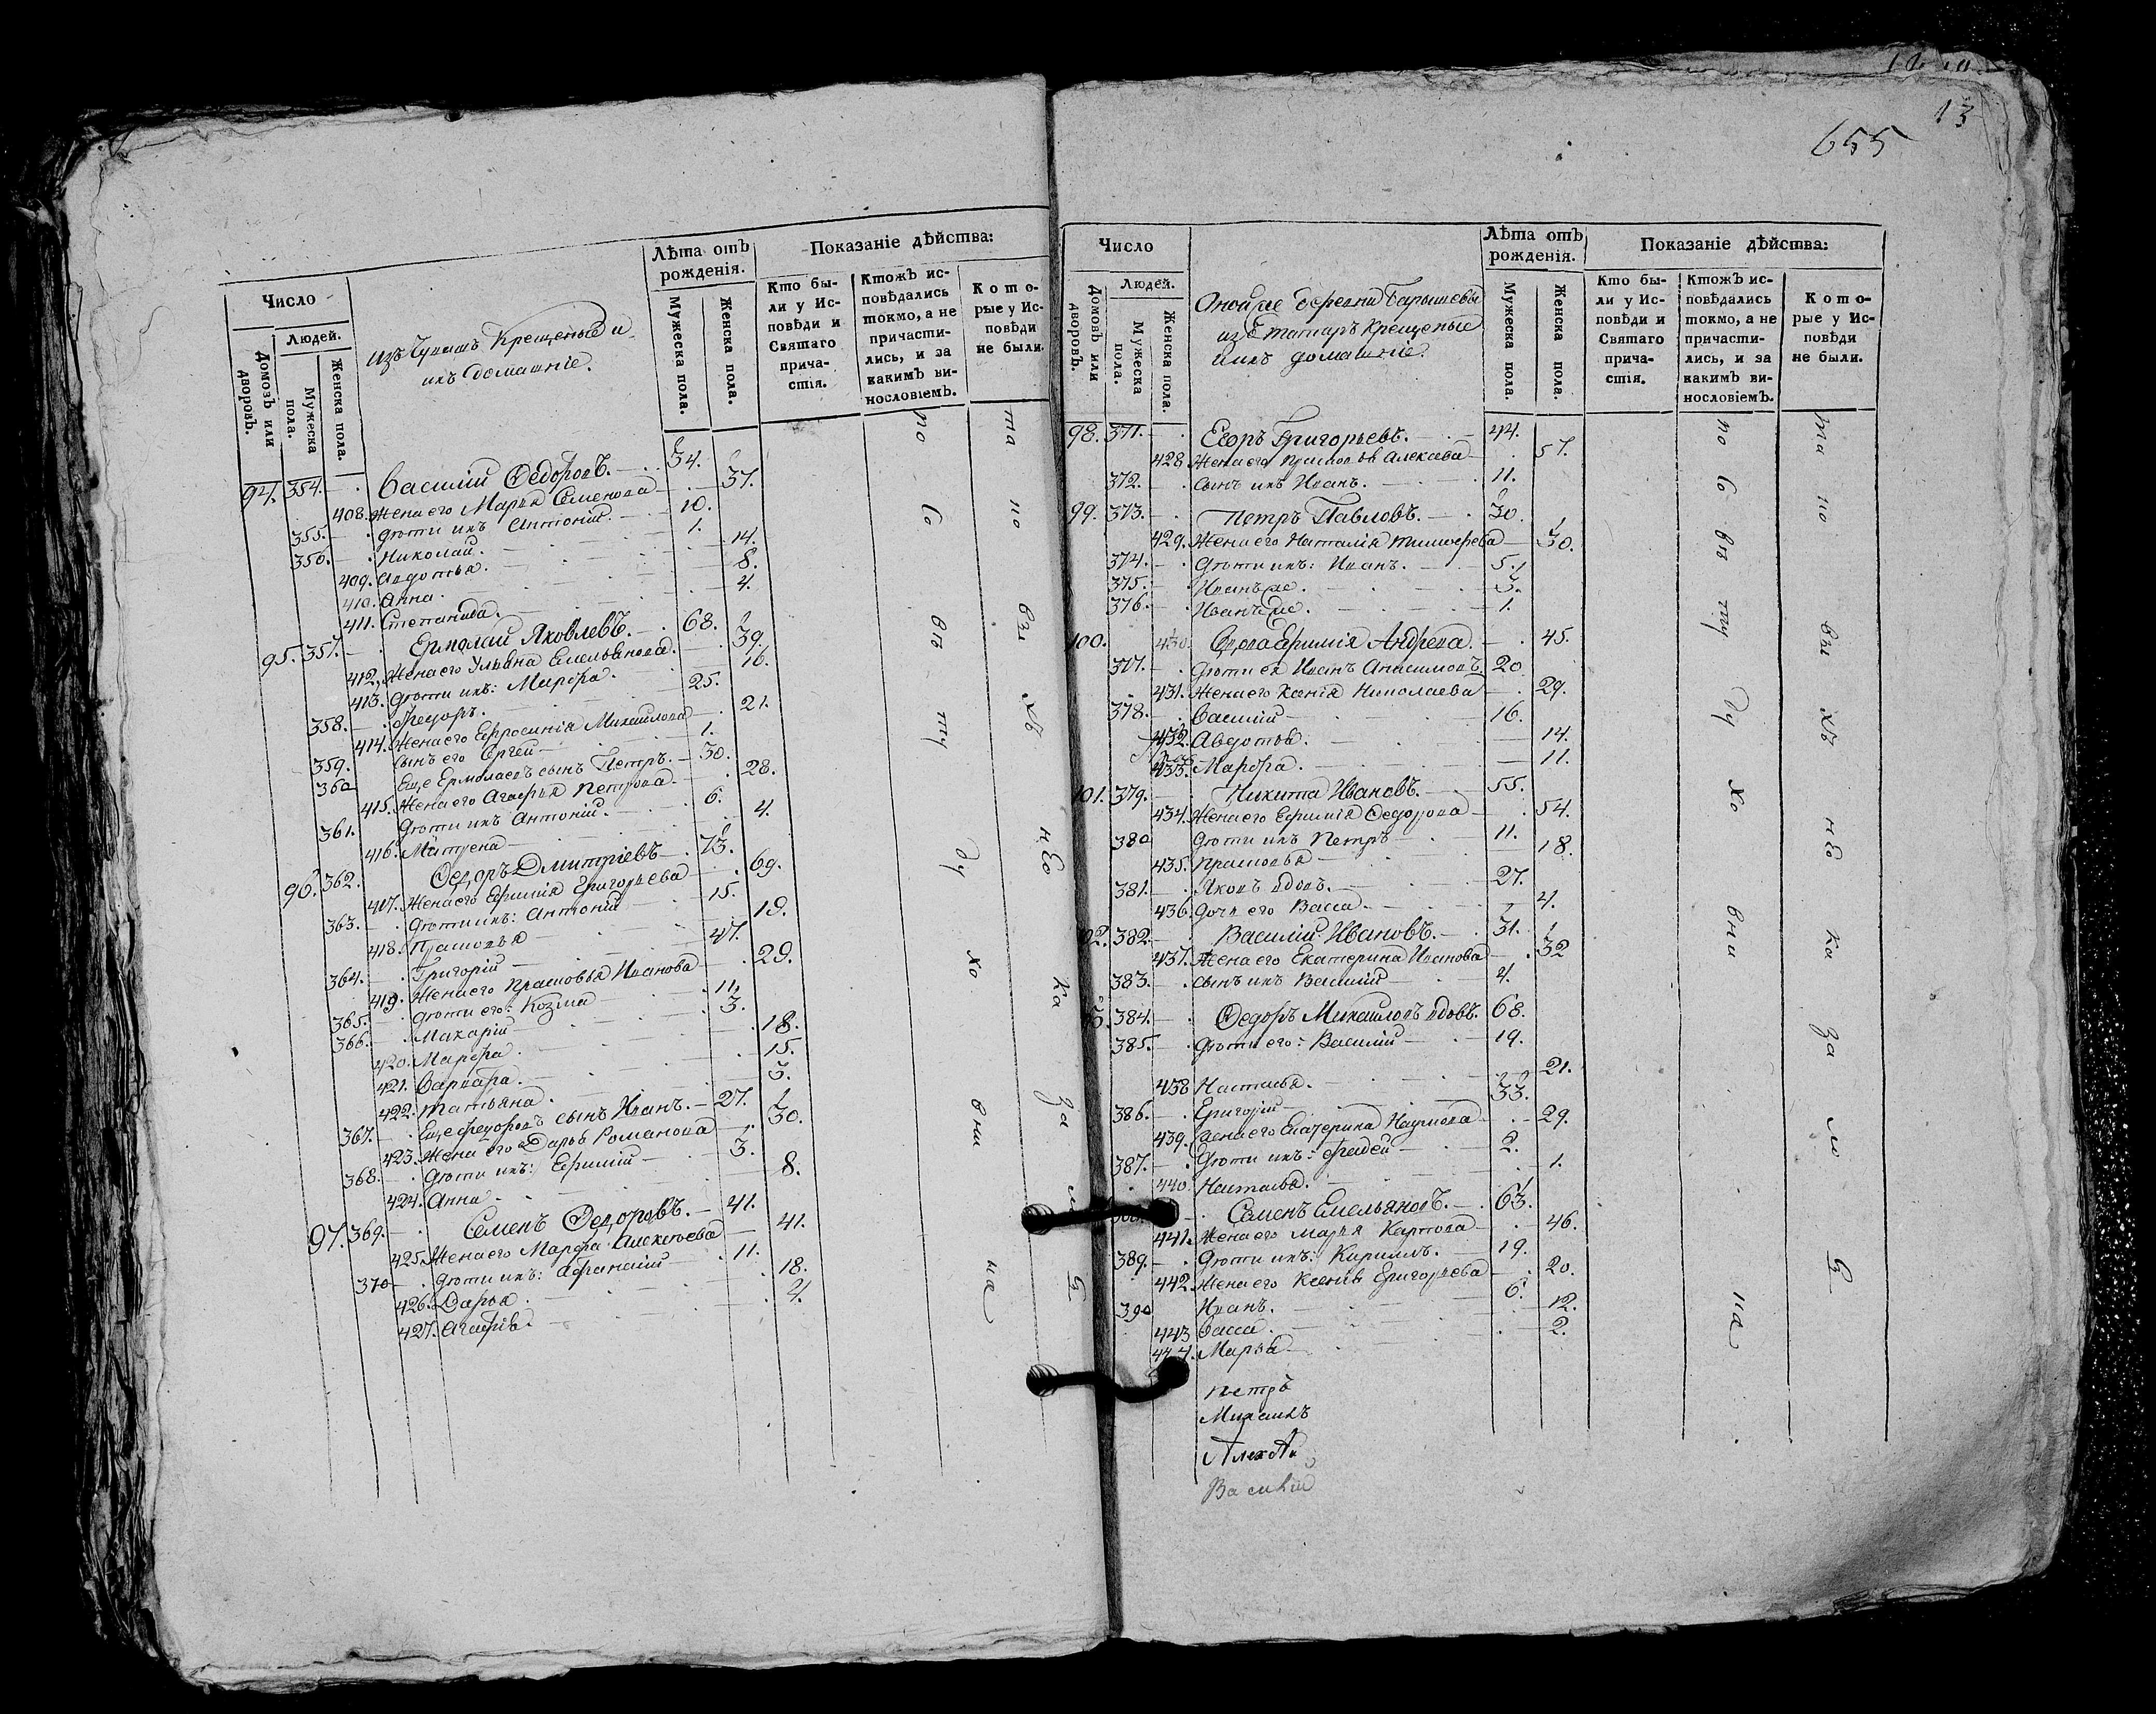 13
655
Число
Людей.
Домовъ или дворовъ.
Мужеска пола.
Женска пола.
изъ Чувашъ Крещеные и
ихъ домашніе.
Лѣта отъ рожденія.
Мужеска пола.
Женска пола.
Показаніе дѣйства:
Кто бы-
ли у Ис-
повѣди и
Святаго
прича-
стія.
Ктожъ ис-
повѣдались
токмо, а не
причасти-
лись, и за
какимъ ви-
нословіемъ.
Кото-
рые у Ис-
повѣди
не были.
94. 354. Василий Федоровъ. 34.
408. Жена его Марья Семенова 37.
355. дѣти ихъ Антоній. 10.
356. Николай. 1.
409. Авдотья. 14.
410. Анна. 8.
411. Степанида. 4.
95. 357. Ермолай Яковлевъ. 68.
412. Жена его Ульяна Емельянова. 39.
413. дѣти ихъ: Марфа. 16.
358. Федоръ. 25.
414. Жена его Ефросинія Михайлова 21.
359. Сынъ его Сергей 1.
360 Еще Ермолаевъ сынъ Петръ. 30.
415. Жена его Агафья Петрова 28.
361. Дѣти ихъ Антоній. 6.
416. Матрена 4.
96. 362. Федоръ Дмитріевъ 73.
417. Жена его Ефимія Григорьева 69.
363. Дѣти ихъ: Антоній 15.
418. Прасковья 19.
364. Григорій 47.
419. Жена его Прасковья Иванова 29.
365. дѣти его: Козма 11.
366. Макарій 3.
420. Марфа. 18.
421. Варвара. 15.
422. Татьяна. 3.
367. Еще Федоровъ сынъ Иванъ. 27.
423. Жена его Дарья Романова 30.
368. Дѣти ихъ: Ефимій 3.
424. Анна 8.
97. 369. Семенъ Федоровъ. 41.
425. Жена его Марфа Алексѣева 41.
370 Дѣти ихъ: Афанасій 11.
426. Дарья. 18.
427. Агафія. 4.
по Со вѣ ту ду хо вни ка
та по вы хъ нѣ ка за
Число
Людей.
Домовъ или дворовъ.
Мужеска пола.
Женска пола.
Оной же деревни Барышевы
изъ татаръ крещеные
ихъ домашніе.
Лѣта отъ рожденія.
Мужеска пола.
Женска пола.
Показаніе дѣйства:
Кто бы-
ли у Ис-
повѣди и
Святаго
прича-
стія.
Ктожъ ис-
повѣдались
токмо, а не
причасти-
лись, и за
какимъ ви-
нословіемъ.
Кото-
рые у Ис-
повѣди
не были.
98. 371. Егоръ Григорьевъ. 44.
428 Жена его Прасковья Алексѣева 57.
372. Сынъ ихъ Иванъ. 11.
99. 373. Петръ Павловъ. 30.
429. Жена его Наталія Тимофеева 30.
374. Дѣти ихъ: Иванъ. 5.
375. Иванъ же. 3.
376. Иванъ же. 1.
100. 430 Вдова Ефимія Андреева. 45.
377. Дѣти ея Иванъ Анисимовъ 20
431. Жена его Ксенія Николаева 29.
378. Василій 16.
432. Авдотья. 14.
433. Марфа. 11.
101. 379. Никита Ивановъ. 55.
434. Жена его Ефимія Федорова 54.
380 Дѣти ихъ Петръ 11.
435. Прасковья 18.
381. Яковъ вдовъ. 27.
436. Дочь его Васса. 4.
382. Василій Ивановъ. 31.
437. Жена его Екатерина Иванова 32
383. Сынъ ихъ Василій 4.
384. Федоръ Михайловъ вдовъ. 68.
385. Дѣти его: Василій 19.
438 Настасья. 21.
386. Григорій 33.
439. Жена его Екатерина Наумова 29.
387. Дѣти ихъ: Фадей 2.
440. Наталья. 1.
Семенъ Емельяновъ. 63.
441. Жена его Марья Карпова 46.
389. Дѣти ихъ: Кирилъ. 19.
442. Жена его Ксенія Григорьева 20.
390 Иванъ. 6.
443 Васса. 12.
444. Марья 2.
Петръ
Михаилъ
Василій
по Со вѣ ту ду хо вни ка
та по вы хъ нѣ ка за